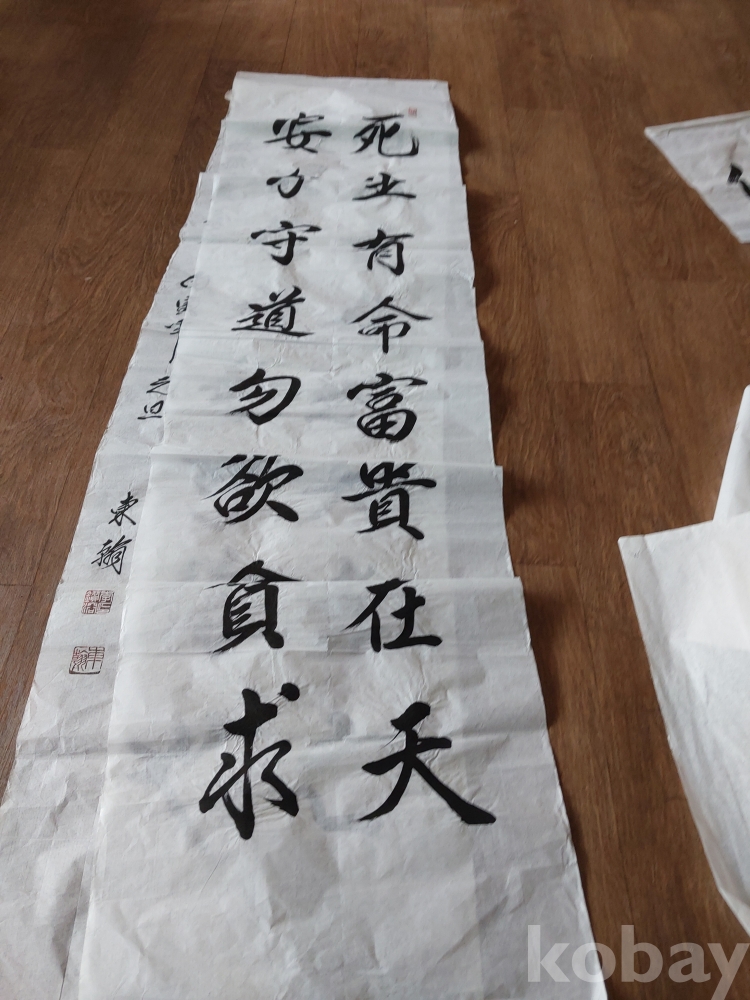 死生有命富貴在天
安分守道勿欲貪求
東翰
kobay